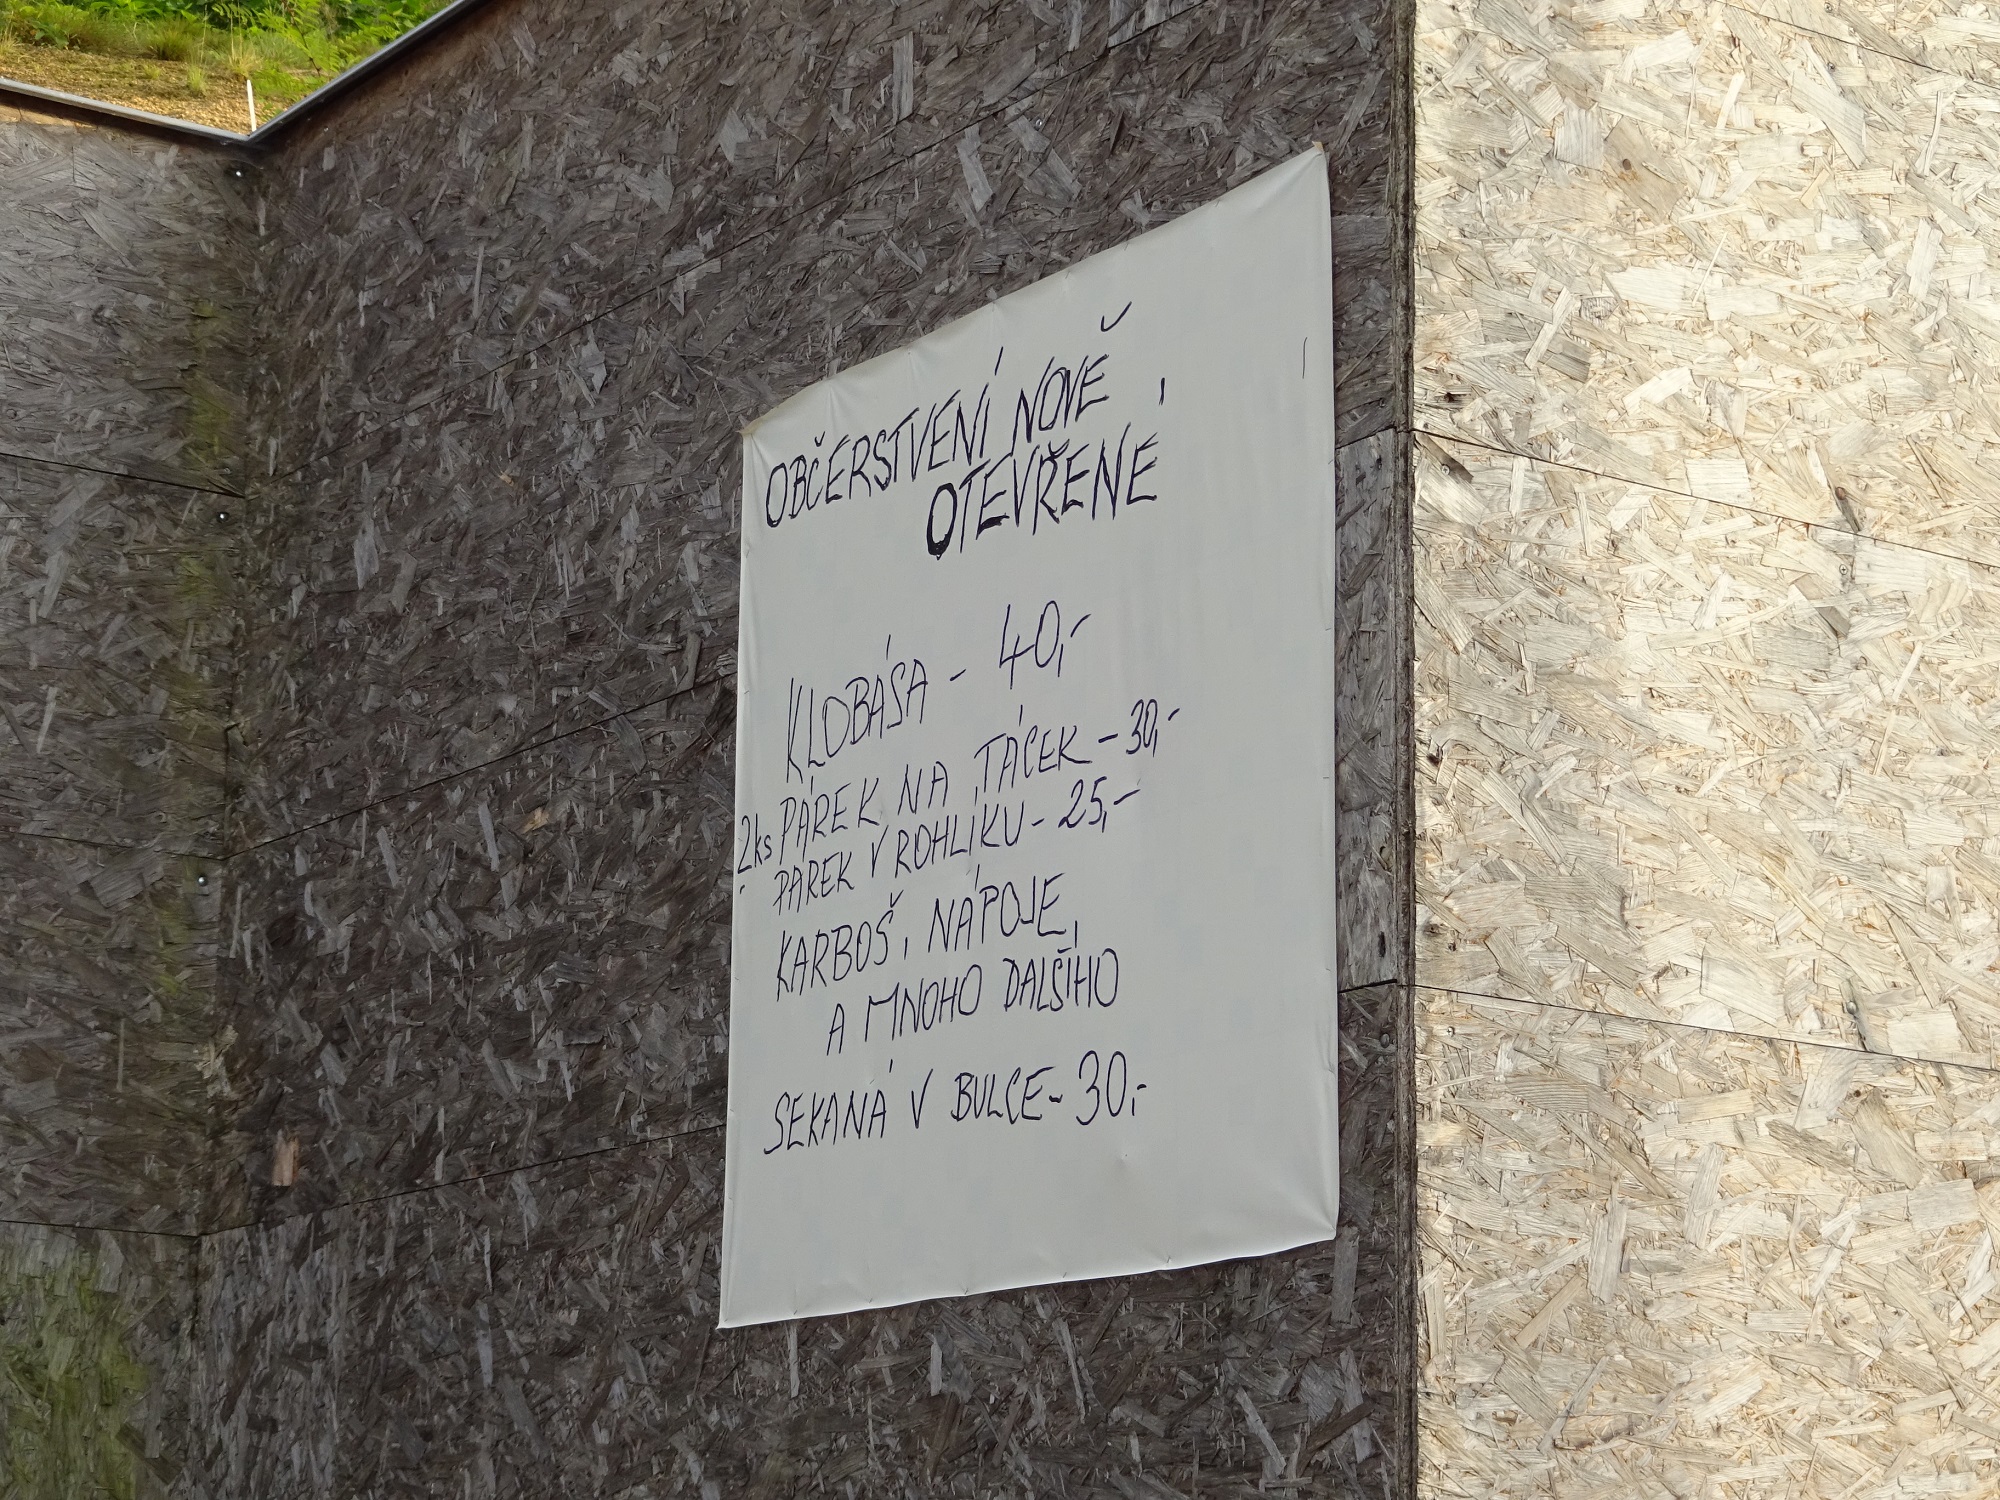 OBČERSTVENÍ NOVĚ
OTEVŘENÉ
KLOBÁSA - 40,-
2ks PÁREK NA TÁCEK - 30,-
PÁREK V ROHLÍKU - 25,-
KARBOŠ, NÁPOJE,
A MNOHO DALŠÍHO
SEKANÁ V BULCE - 30,-